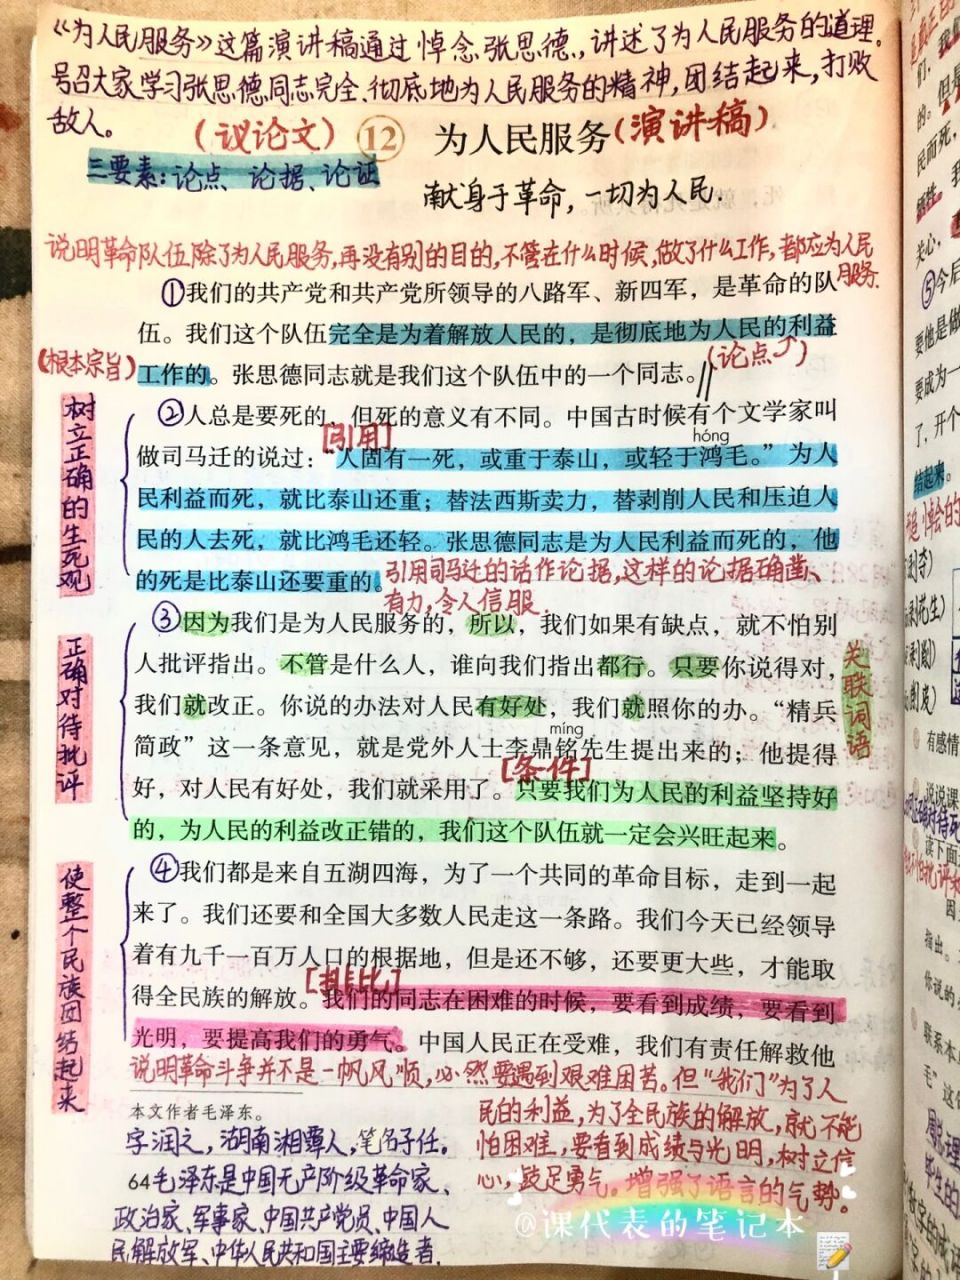 《为人民服务》这篇演讲稿通过悼念张思德，讲述了为人民服务的道理。
号召大家学习张思德同志完全、彻底地为人民服务的精神，团结起来，打败
敌人。
（议论文）⑫ 为人民服务（演讲稿）
三要素：论点、论据、论证
献身于革命，一切为人民.
说明革命队伍除了为人民服务，再没有别的目的，不管在什么时候，做了什么工作，都应为人民
服务.
①我们的共产党和共产党所领导的八路军、新四军，是革命的队
伍。我们这个队伍完全是为着解放人民的，是彻底地为人民的利益
（根本宗旨）
（论点）
工作的。张思德同志就是我们这个队伍中的一个同志。
树立正确的生死观
②人总是要死的，但死的意义有不同。中国古时候有个文学家叫
[引用]
hóng
做司马迁的说过：“人固有一死，或重于泰山，或轻于鸿毛。”为人
民利益而死，就比泰山还重；替法西斯卖力，替剥削人民和压迫人
民的人去死，就比鸿毛还轻。张思德同志是为人民利益而死的，他
的死是比泰山还要重的。
引用司马迁的话作论据，这样的论据确凿、
有力，令人信服.
正确对待批评
③因为我们是为人民服务的，所以，我们如果有缺点，就不怕别
人批评指出。不管是什么人，谁向我们指出都行。只要你说得对，
关联词语
我们就改正。你说的办法对人民有好处，我们就照你的办。“精兵
míng
简政”这一条意见，就是党外人士李鼎铭先生提出来的；他提得
[条件]
好，对人民有好处，我们就采用了。只要我们为人民的利益坚持好
的，为人民的利益改正错的，我们这个队伍就一定会兴旺起来。
使整个民族团结起来
④我们都是来自五湖四海，为了一个共同的革命目标，走到一起
来了。我们还要和全国大多数人民走这一条路。我们今天已经领导
着有九千一百万人口的根据地，但是还不够，还要更大些，才能取
[排比]
得全民族的解放。我们的同志在困难的时候，要看到成绩，要看到
光明，要提高我们的勇气。中国人民正在受难，我们有责任解救他
说明革命斗争并不是一帆风顺，必然要遇到艰难困苦。但“我们”为了人
民的利益，为了全民族的解放，就不能
怕困难，要看到成绩与光明，树立信
心，鼓足勇气。增强了语言的气势。
本文作者毛泽东。
字润之，湖南湘潭人，笔名子任。
64
毛泽东是中国无产阶级革命家、
政治家、军事家、中国共产党员、中国人
民解放军、中华人民共和国主要缔造者.
@课代表的笔记本
的。但是
民而死，
牺牲。我
关心，
⑤今后
要他是做
要成为一
了，开个
结起来。
有感情
说说课
读下面
指出。
你说的
联系本
毛”这